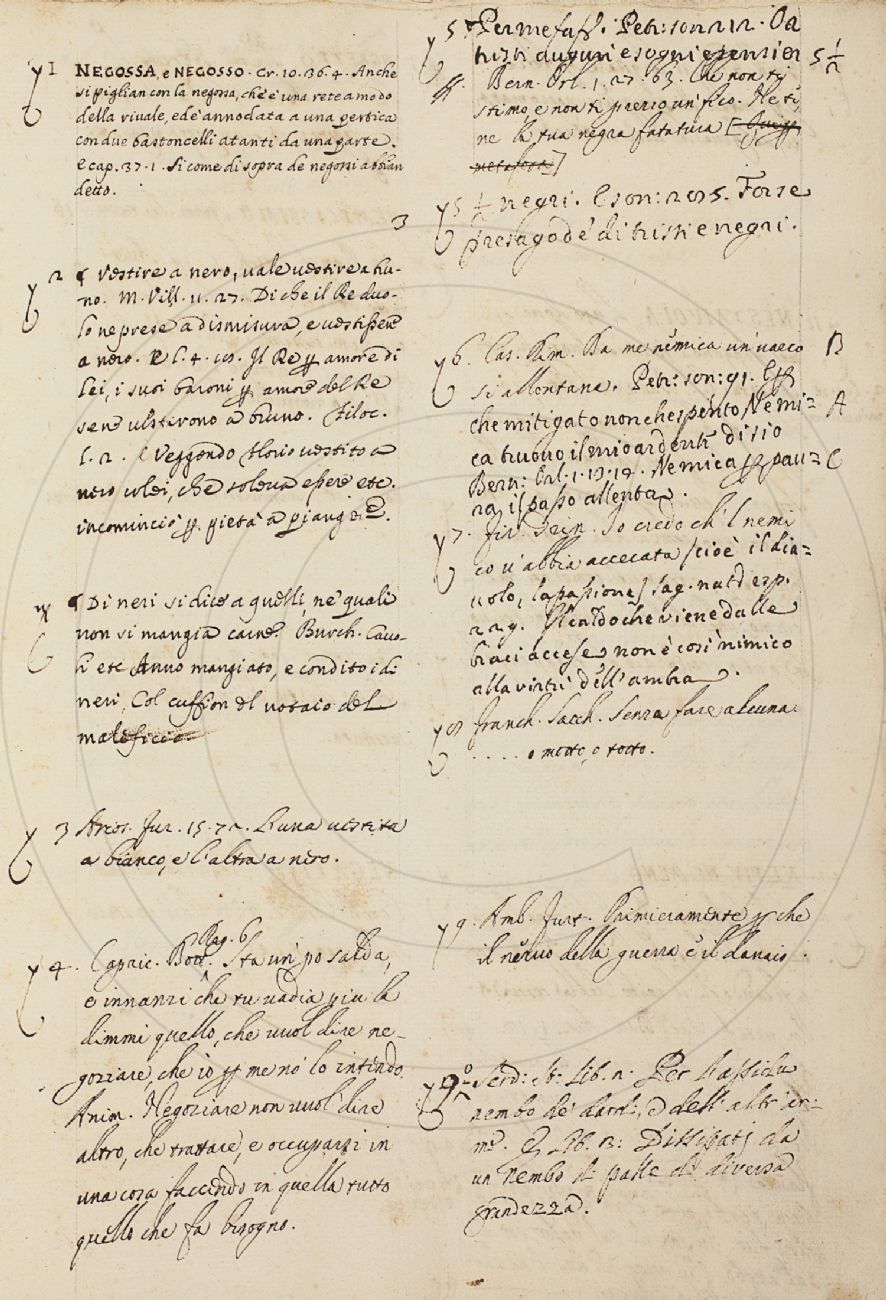 1 NEGOSSA, e NEGOSSO. Cr. 10. 36. 4. Anche
si piglian con la negossa, che è una rete a modo
della rivale, ed è annodata a una pertica
con due bastoncelli atanti da una parte.
e cap. 37. 1. Si come di sopra de negossi abbian
detto.
3
2 Vestire a nero, vale vestire a bru-
no. M. Vill. 11. 27. Di che il Re duo-
lo ne prese a dismisura, e vestissene
a nero. Il Re per amore di
lei, i suoi baroni per amore del Re
sene vestirono a bruno. Filoc.
l. 2. Veggendo Florio vestito a
nero colei, che soleva essere etc.
incominciò per pietà a piangere.
Di neri si dice a quelli, ne' quali
non si mangia carne. Burch. Cavo-
li etc Anno mangiato, e condito i dì
neri, Col cuffion del notaio del
maleficio
3 Arios. Fur. 15. 72. L'una vestita
a bianco, e l'altra a nero.
Rag. 6
4. Capric. Bott. Sta un po salda,
e innanzi che tu vadia più là
dimmi quello, che vuol dire ne-
goziare, che io per me no' lo intendo.
Anim. Negoziare non vuol dire
altro, che trattare, e occuparsi in
una cosa faccendo in quella tutto
quello che fa bisogno.
5 Per metaf. Petr: son: 212. Da
tristi auguri e sogni e pensier 5 1/2
Bern. Orl. 1. 27. 63. Che non ti
stimo, e non ti prezzo un fico. Ne ti,
ne la tua negra fatatura
metafora]
5 1/2 negri. E son: 205. Forse
presago de' dì tristi e negri.
6. Cas. Rim. Da me nemica un varco B
si allontana. Petr: son: 91.
che mitigato non che spento, Nemi= A
ca truovo il mio ardente disio
Bern: Orl. 1. 13. 12. Nemica per pau= C
ra, il passo allenta.
7. Io credo ch'l nemi
co v'abbia accecata /cioè il dia=
volo, la passione/ Sag. nat: esp.
229. Il caldo che viene dalle
braci accese non è così nimico
alla virtù dell'ambra.
8 Franch. Sacch. Senza fare alcuna
. . . . . o motto, o totto.
9. Amb. Furt. Primieramente perche
il nervo della guerra è il danaio.
9 Serd: St: Lib. Per l'assiduo
nembo de' dardi, e dell' altr' ar-
me. E Lib. 13: Dissipati da
un nembo di palle di diversa
grandezza.